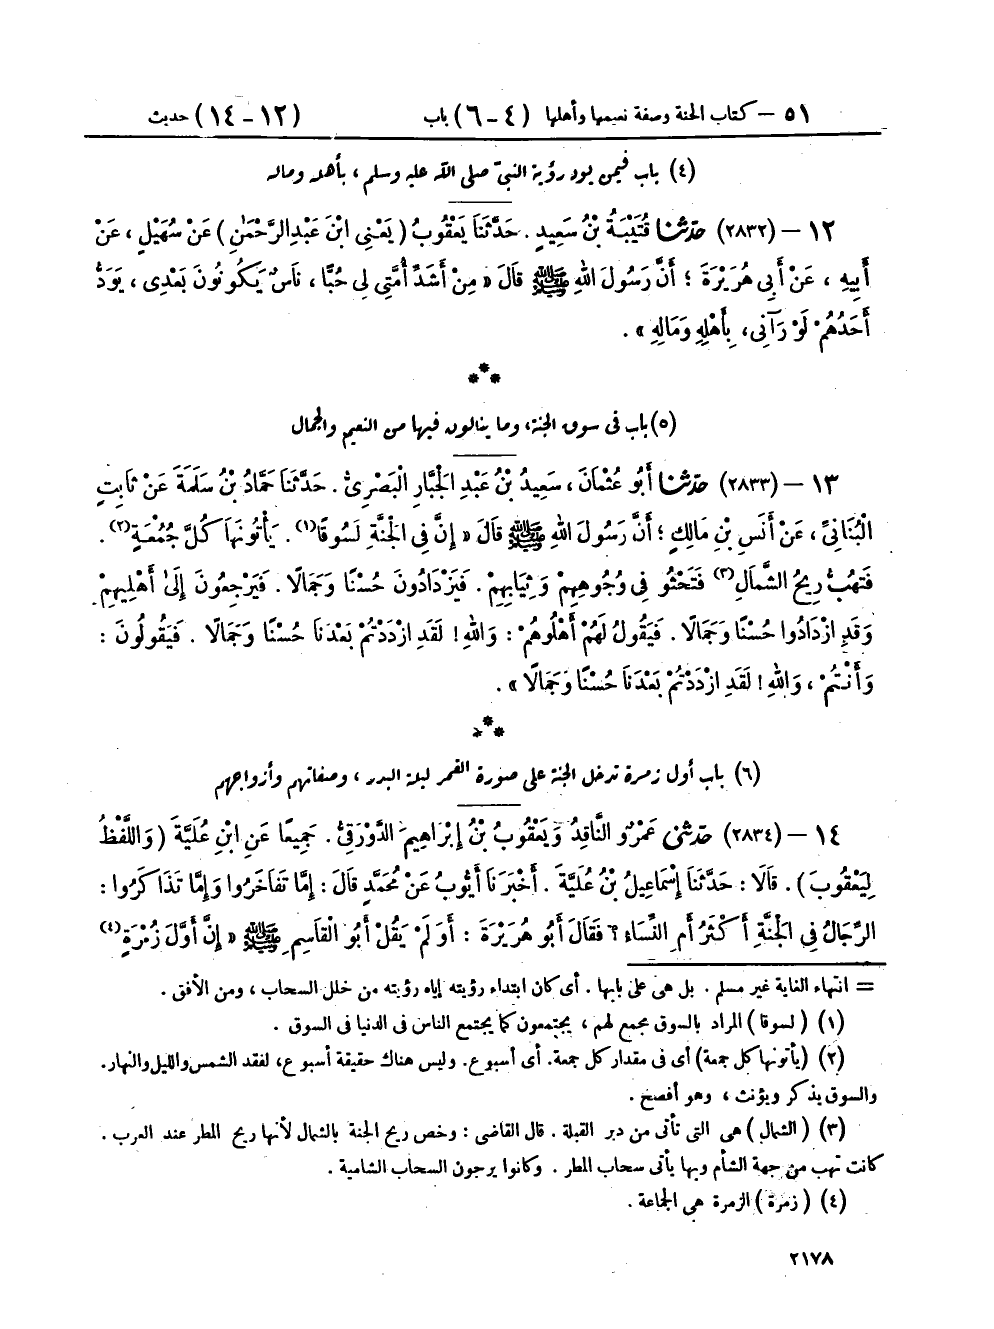 ٥١ – كتاب الجنة وصفة نسيمها وأهلها (٤ – ٦) باب (١٢ – ١٤) حديث
(٤) باب فيمن يود رؤية النبيّ صلى الله عليه وسلم ، بأهله وماله
١٢ – (٢٨٣٢) حَدَّثَنَا قُتَيْبَةُ بْنُ سَعِيدٍ . حَدَّثَنَا يَعْقُوبُ (يَعْنِي ابْنَ عَبْدِالرَّحْمَنِ) عَنْ سُهَيْلٍ ، عَنْ
أَبِيهِ ، عَنْ أَبِي هُرَيْرَةَ ؛ أَنَّ رَسُولَ اللهِ ﷺ قَالَ « مِنْ أَشَدِّ أُمَّتِي لِي حُبًّا ، نَاسٌ يَكُونُونَ بَعْدِي ، يَوَدُّ
أَحَدُهُمْ لَوْ رَآنِي ، بِأَهْلِهِ وَمَالِهِ » .
***
(٥) باب في سوق الجنة، وما ينالون فيها من النعيم والجمال
١٣ – (٢٨٣٣) حَدَّثَنَا أَبُو عُثْمَانَ ، سَعِيدُ بْنُ عَبْدِ الْجَبَّارِ الْبَصْرِيُّ . حَدَّثَنَا حَمَّادُ بْنُ سَلَمَةَ عَنْ ثَابِتٍ
الْبُنَانِيِّ ، عَنْ أَنَسِ بْنِ مَالِكٍ ؛ أَنَّ رَسُولَ اللهِ ﷺ قَالَ « إِنَّ فِي الْجَنَّةِ لَسُوقًا(١) . يَأْتُونَهَا كُلَّ جُمُعَةٍ(٢) .
فَتَهُبُّ رِيحُ الشَّمَالِ(٣) فَتَحْثُو فِي وُجُوهِهِمْ وَثِيَابِهِمْ . فَيَزْدَادُونَ حُسْنًا وَجَمَالًا . فَيَرْجِعُونَ إِلَىٰ أَهْلِيهِمْ .
وَقَدِ ازْدَادُوا حُسْنًا وَجَمَالًا . فَيَقُولُ لَهُمْ أَهْلُوهُمْ : وَاللهِ ! لَقَدِ ازْدَدْتُمْ بَعْدَنَا حُسْنًا وَجَمَالًا . فَيَقُولُونَ :
وَأَنْتُمْ ، وَاللهِ ! لَقَدِ ازْدَدْتُمْ بَعْدَنَا حُسْنًا وَجَمَالًا » .
***
(٦) باب أول زمرة تدخل الجنة على صورة القمر ليلة البدر ، وصفاتهم وأزواجهم
١٤ – (٢٨٣٤) حَدَّثَنِي عَمْرٌو النَّاقِدُ وَيَعْقُوبُ بْنُ إِبْرَاهِيمَ الدَّوْرَقِيُّ . جَمِيعًا عَنِ ابْنِ عُلَيَّةَ (وَاللَّفْظُ
لِيَعْقُوبَ) . قَالَا : حَدَّثَنَا إِسْمَاعِيلُ بْنُ عُلَيَّةَ . أَخْبَرَنَا أَيُّوبُ عَنْ مُحَمَّدٍ قَالَ : إِمَّا تَفَاخَرُوا وَإِمَّا تَذَاكَرُوا :
الرِّجَالُ فِي الْجَنَّةِ أَكْثَرُ أَمِ النِّسَاءُ ؟ فَقَالَ أَبُو هُرَيْرَةَ : أَوَلَمْ يَقُلْ أَبُو الْقَاسِمِ ﷺ « إِنَّ أَوَّلَ زُمْرَةٍ(٤)
= انتهاء الغاية غير مسلم . بل هي على بابها . أى كان ابتداء رؤيته إياه رؤيته من خلل السحاب ، ومن الأفق .
(١) (لسوقا) المراد بالسوق مجمع لهم ، يجتمعون كما يجتمع الناس فى الدنيا فى السوق .
(٢) (يأتونها كل جمعة) أى فى مقدار كل جمعة. أى أسبوع. وليس هناك حقيقة أسبوع، لفقد الشمس والليل والنهار.
والسوق يذكر ويؤنث ، وهو أفصح .
(٣) (الشمال) هى التى تأتى من دبر القبلة . قال القاضى : وخص ريح الجنة بالشمال لأنها ريح المطر عند العرب .
كانت تهب من جهة الشأم وبها يأتى سحاب المطر . وكانوا يرجون السحاب الشامية .
(٤) (زمرة) الزمرة هى الجماعة .
٢١٧٨